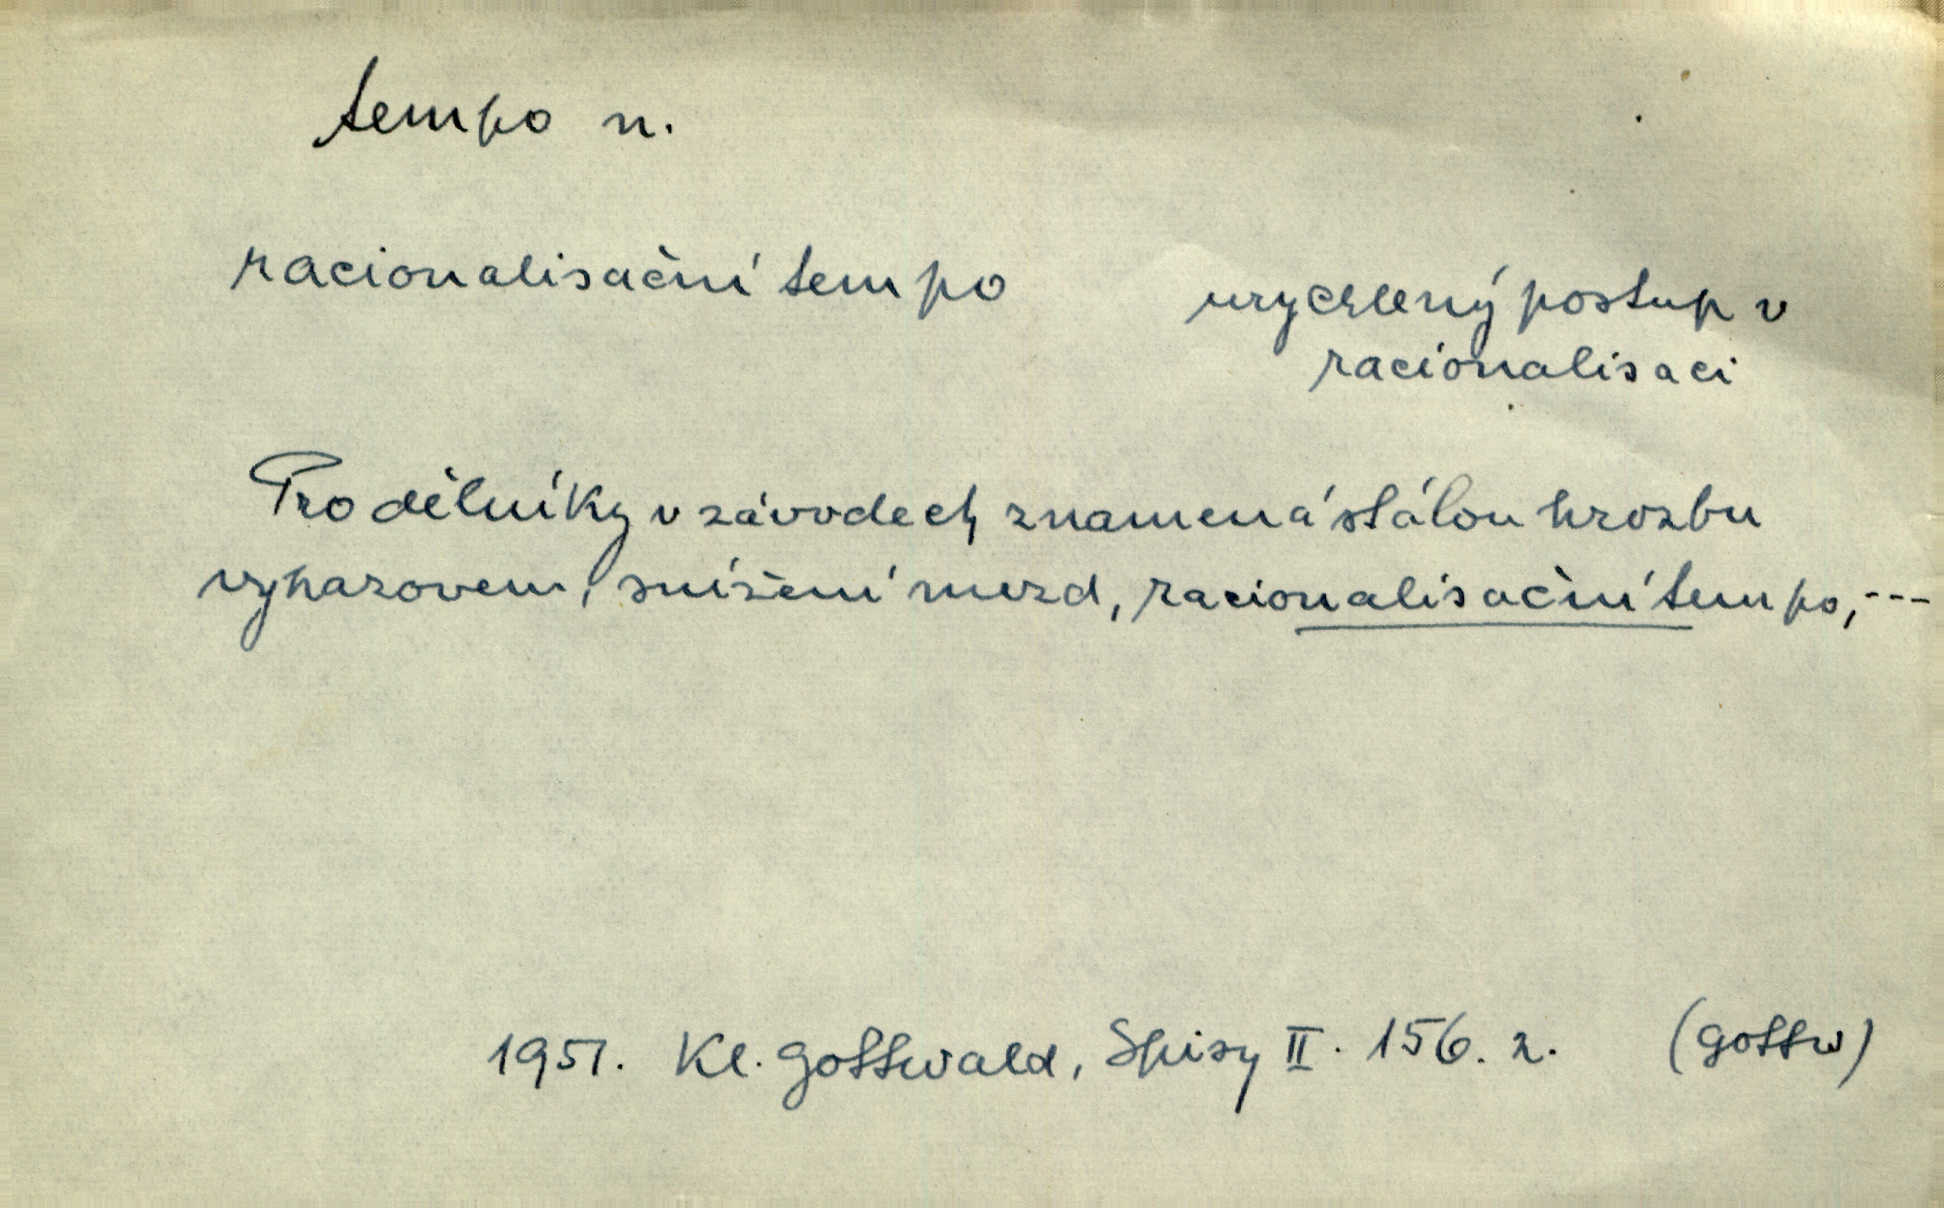 tempo n.
racionalisační tempo
urychlený postup v
racionalisaci
Pro dělníky v závodech znamená stálou hrozbu
vyhazovem, snížení mezd, racionalisační tempo, ---
1951. Kl. Gottwald, Spisy II. 156. 2. (Gottw)